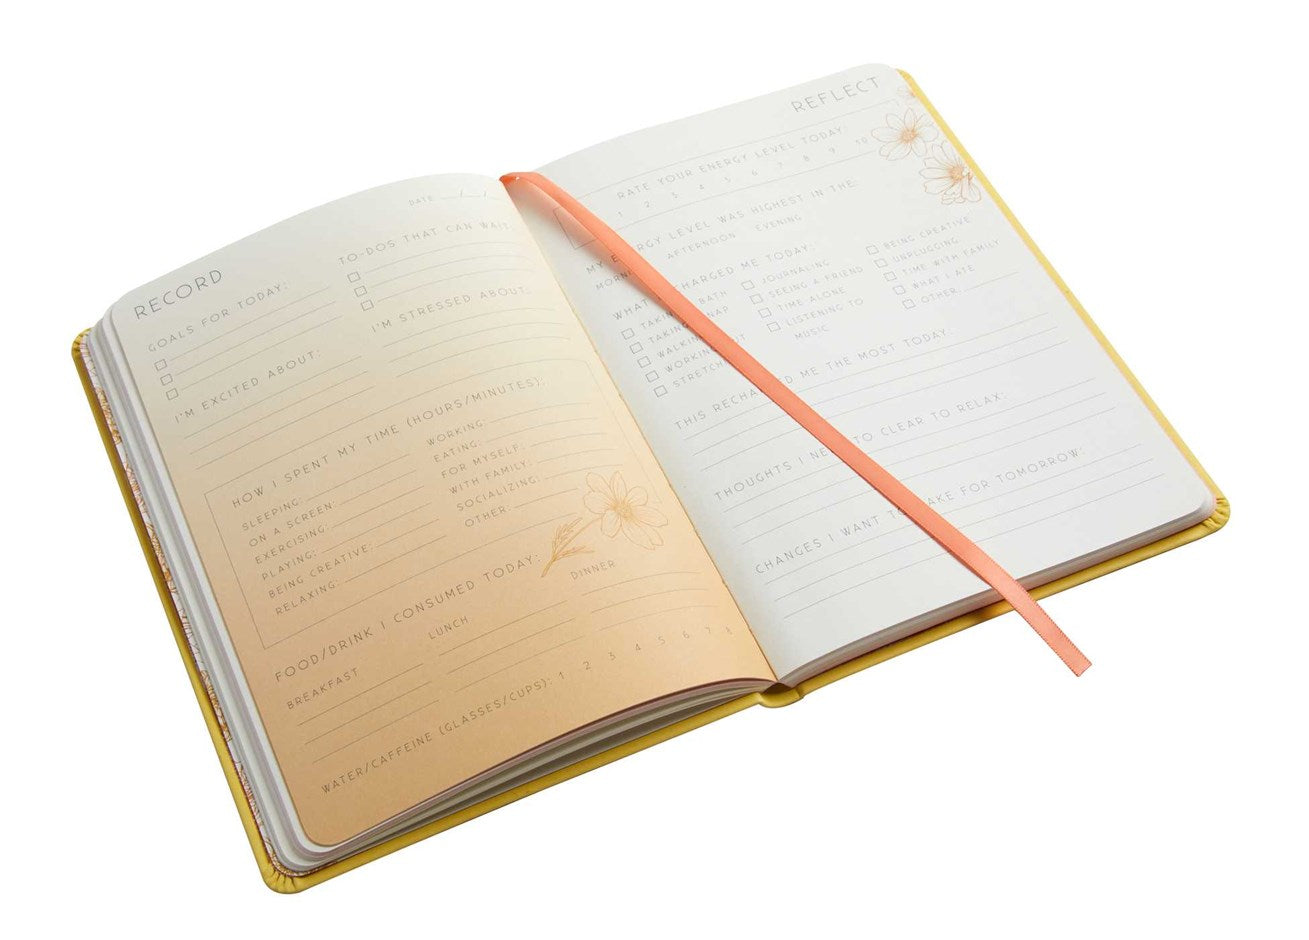 RECORD
DATE / /
GOALS FOR TODAY:
TO-DOS THAT CAN WAIT
I'M EXCITED ABOUT:
I'M STRESSED ABOUT:
HOW I SPENT MY TIME (HOURS/MINUTES):
SLEEPING:
ON A SCREEN:
EXERCISING:
PLAYING:
BEING CREATIVE:
RELAXING:
WORKING:
EATING:
FOR MYSELF:
WITH FAMILY:
SOCIALIZING:
OTHER:
FOOD/DRINK I CONSUMED TODAY:
BREAKFAST
LUNCH
DINNER
WATER/CAFFEINE (GLASSES/CUPS): 1 2 3 4 5 6 7 8
REFLECT
RATE YOUR ENERGY LEVEL TODAY:
1 2 3 4 5 6 7 8 9 10
MY ENERGY LEVEL WAS HIGHEST IN THE:
MORN AFTERNOON EVENING
WHAT CHARGED ME TODAY:
TAK BATH
TAKING NAP
WALKIN
WORKIN OUT
STRETCH
JOURNALING
SEEING A FRIEND
TIME ALONE
LISTENING TO
MUSIC
BEING CREATIVE
UNPLUGGING
TIME WITH FAMILY
WHAT I ATE
OTHER
THIS RECHA D ME THE MOST TODAY:
THOUGHTS I NE TO CLEAR TO RELAX:
CHANGES I WANT T AKE FOR TOMORROW: